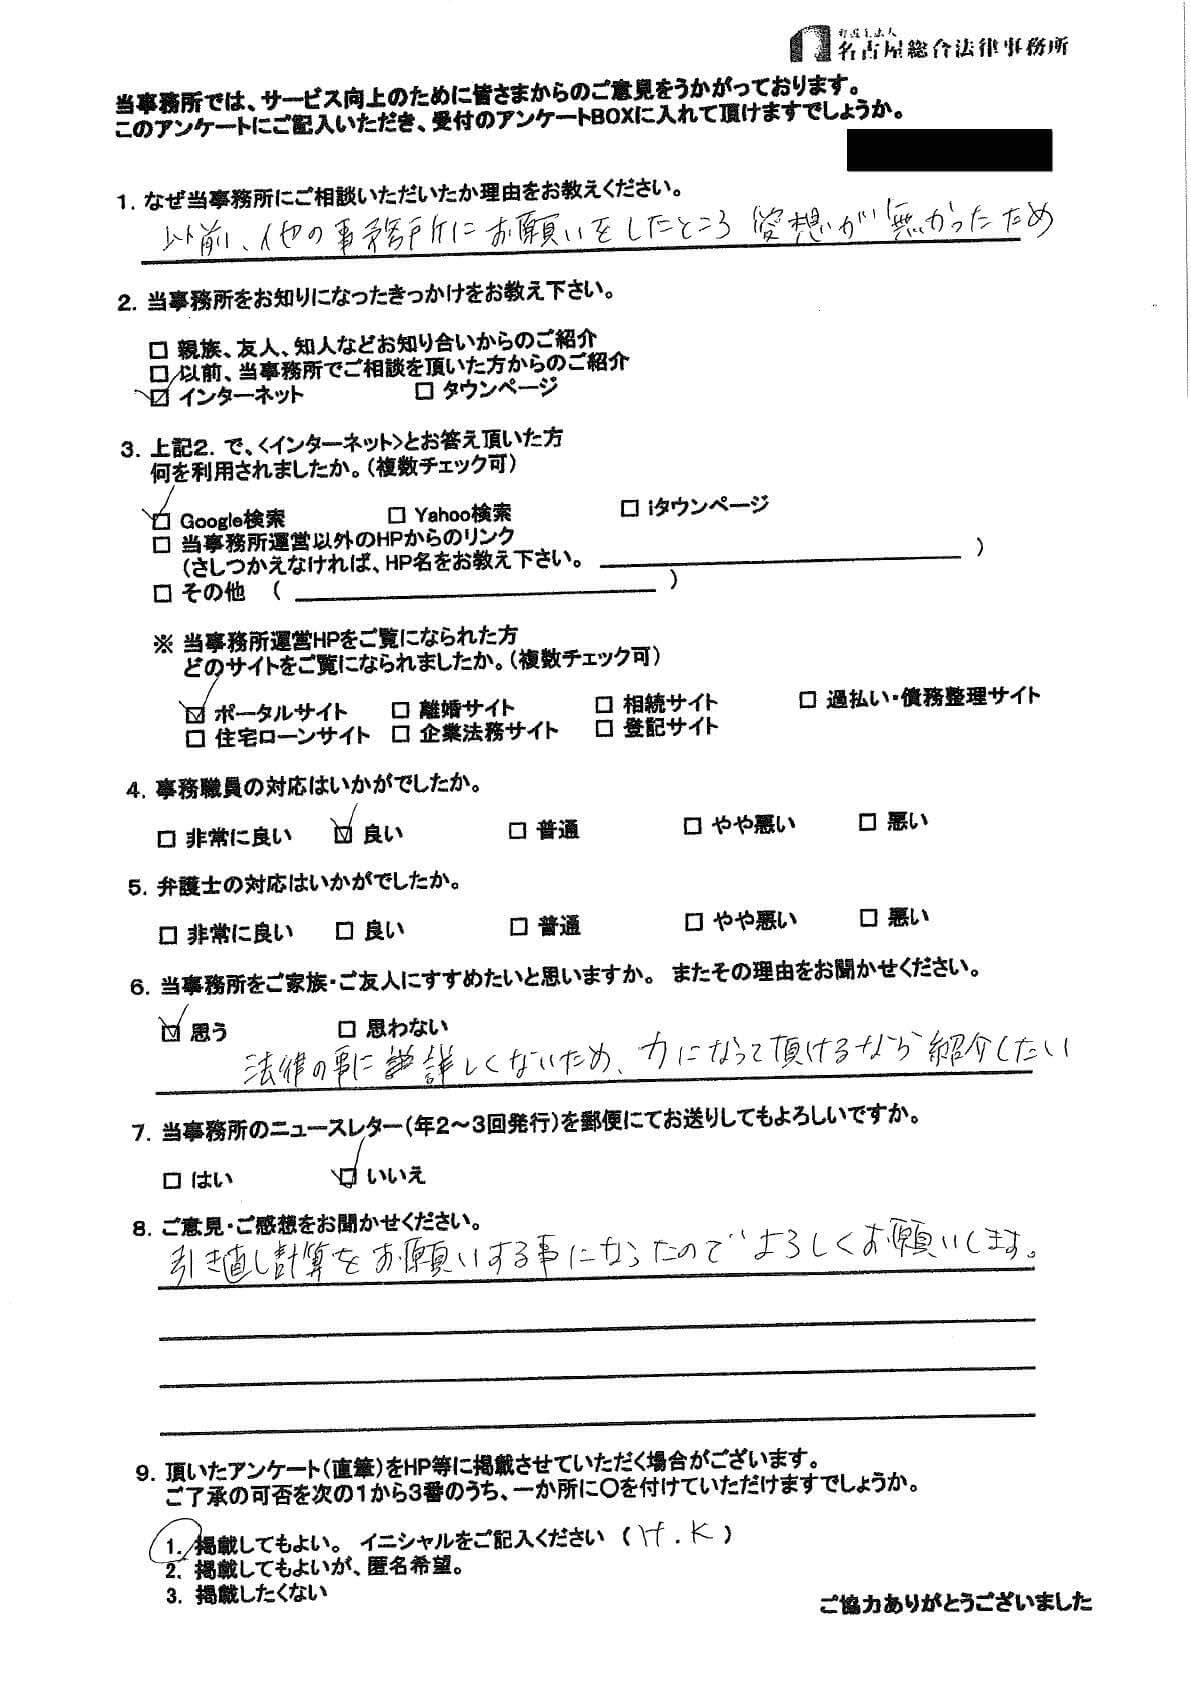 弁護士法人
名古屋総合法律事務所
当事務所では、サービス向上のために皆さまからのご意見をうかがっております。
このアンケートにご記入いただき、受付のアンケートBOXに入れて頂けますでしょうか。
1. なぜ当事務所にご相談いただいたか理由をお教えください。
以前、他の事務所にお願いをしたところ 愛想が無かったため
2. 当事務所をお知りになったきっかけをお教え下さい。
□ 親族、友人、知人などお知り合いからのご紹介
□ 以前、当事務所でご相談を頂いた方からのご紹介
☑ インターネット □ タウンページ
3. 上記2. で、<インターネット>とお答え頂いた方
何を利用されましたか。(複数チェック可)
☑ Google検索 □ Yahoo検索 □ iタウンページ
□ 当事務所運営以外のHPからのリンク
(さしつかえなければ、HP名をお教え下さい。 )
□ その他 ( )
※ 当事務所運営HPをご覧になられた方
どのサイトをご覧になられましたか。(複数チェック可)
☑ ポータルサイト □ 離婚サイト □ 相続サイト □ 過払い・債務整理サイト
□ 住宅ローンサイト □ 企業法務サイト □ 登記サイト
4. 事務職員の対応はいかがでしたか。
□ 非常に良い ☑ 良い □ 普通 □ やや悪い □ 悪い
5. 弁護士の対応はいかがでしたか。
□ 非常に良い □ 良い □ 普通 □ やや悪い □ 悪い
6. 当事務所をご家族・ご友人にすすめたいと思いますか。 またその理由をお聞かせください。
☑ 思う □ 思わない
法律の事に詳しくないため、力になって頂けるなら紹介したい
7. 当事務所のニュースレター(年2～3回発行)を郵便にてお送りしてもよろしいですか。
□ はい ☑ いいえ
8. ご意見・ご感想をお聞かせください。
引き直し計算をお願いする事になったのでよろしくお願いします。
9. 頂いたアンケート(直筆)をHP等に掲載させていただく場合がございます。
ご了承の可否を次の1から3番のうち、一か所に○を付けていただけますでしょうか。
1. 掲載してもよい。 イニシャルをご記入ください ( H.K )
2. 掲載してもよいが、匿名希望。
3. 掲載したくない
ご協力ありがとうございました